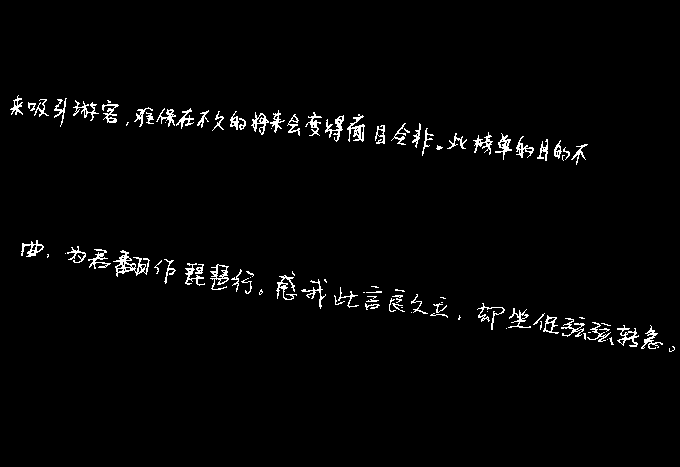 来吸引游客,难保在不久的将来会变得面目全非。此榜单的目的不
曲,为君翻作琵琶行。感我此言良久立,却坐促弦弦转急。